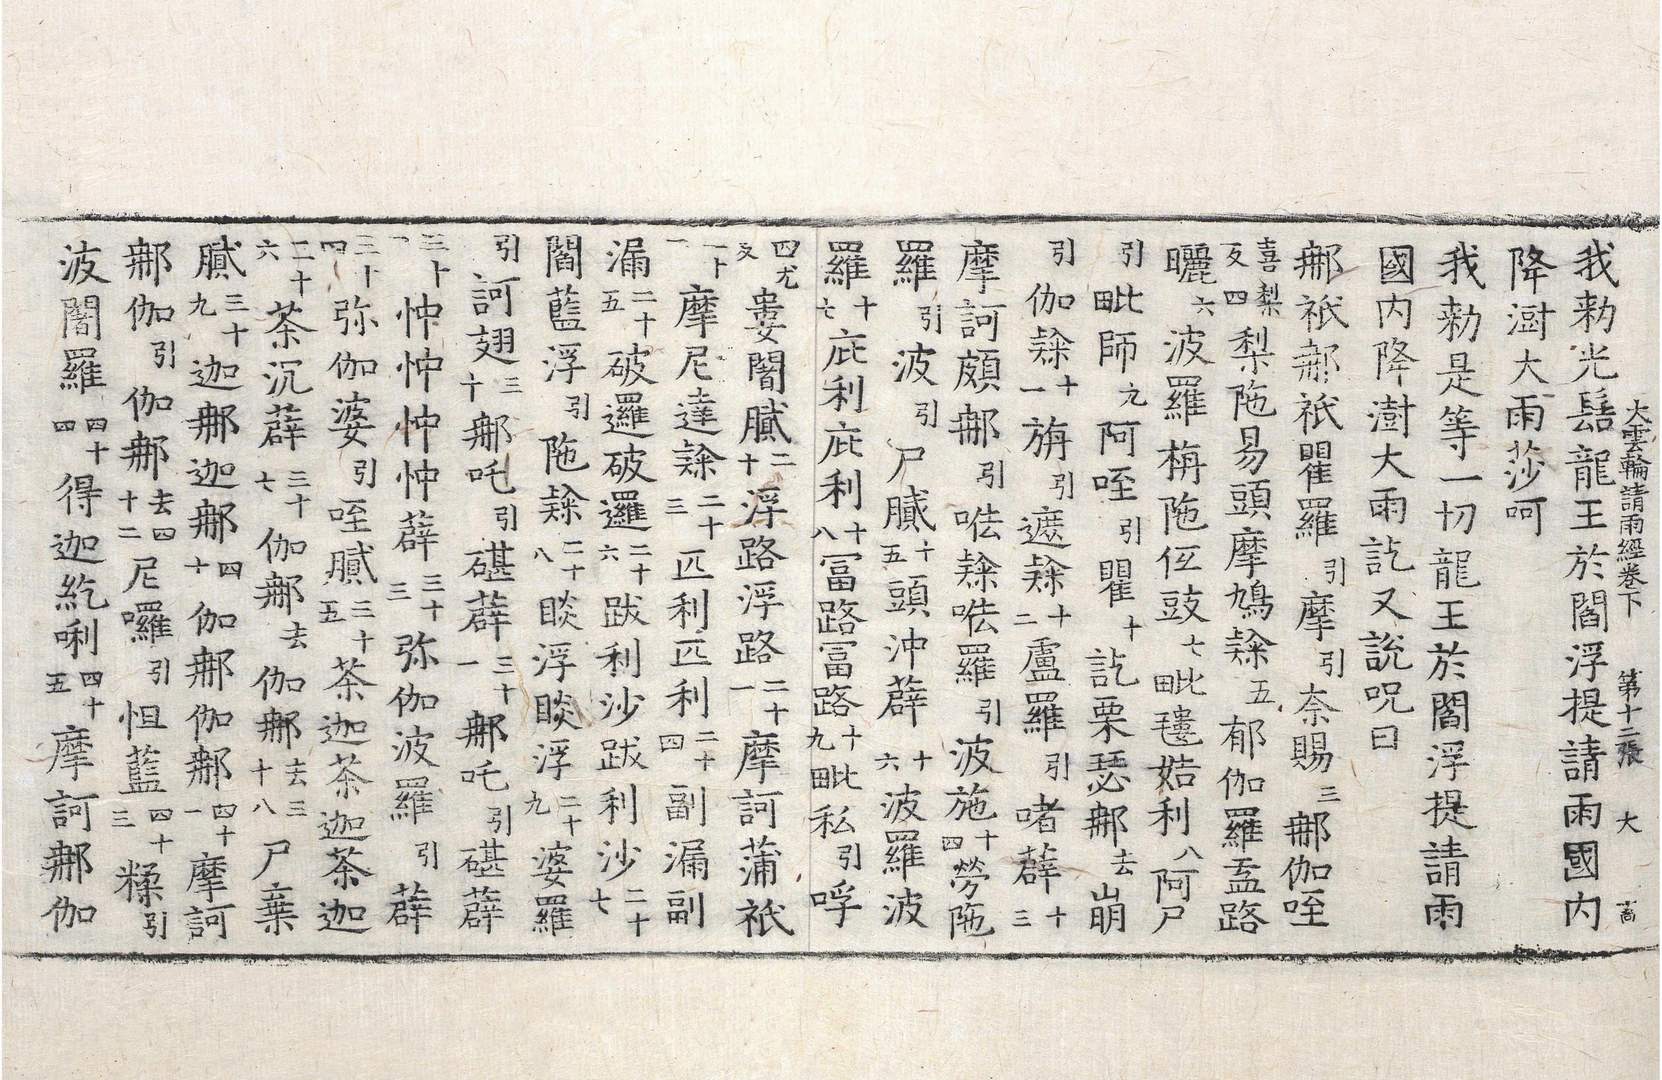 大雲輪請雨經卷下 第十二張 大 高
我勑光髻龍王於閻浮提請雨國內
降澍大雨莎呵
我勑是等一切龍王於閻浮提請雨
國內降澍大雨訖又說呪曰
那祇那祇瞿羅引摩引奈賜三那伽咥
喜梨反四梨陁易頭摩鳩𨽻五郁伽羅盂路
曬六波羅栴陁伍豉七毗𣯶姞利八阿尸
引毗師九阿咥引瞿十訖栗瑟那去崩
引伽𨽻十一旃引遮𨽻十二盧羅引啫薜十三
摩訶頗那引呿𨽻呿羅引波施十四勞陁
羅引波引尸膩十五頭沖薜十六波羅波
羅十七庇利庇利十八冨路冨路十九毗私引呼
四尤反婁闍膩二十浮路浮路二十一摩訶蒲祇
二十一摩尼達𨽻二十三匹利匹利二十四副漏副
漏二十五破邏破邏二十六跋利沙跋利沙二十七
閻藍浮引陁𨽻二十八睒浮睒浮二十九婆羅
引訶翅三十那吒引碪薜三十一那吒引碪薜
三十二忡忡忡忡薜三十三弥伽波羅引薜
三十四弥伽婆引咥膩三十五茶迦茶迦茶迦
三十六茶沉薜三十七伽那去伽那去三十八尸棄
膩三十九迦那迦那四十伽那伽那四十一摩訶
那伽引伽那去四十二尼囉引怛藍四十三糅引
波闍羅四十四得迦紇唎四十五摩訶那伽